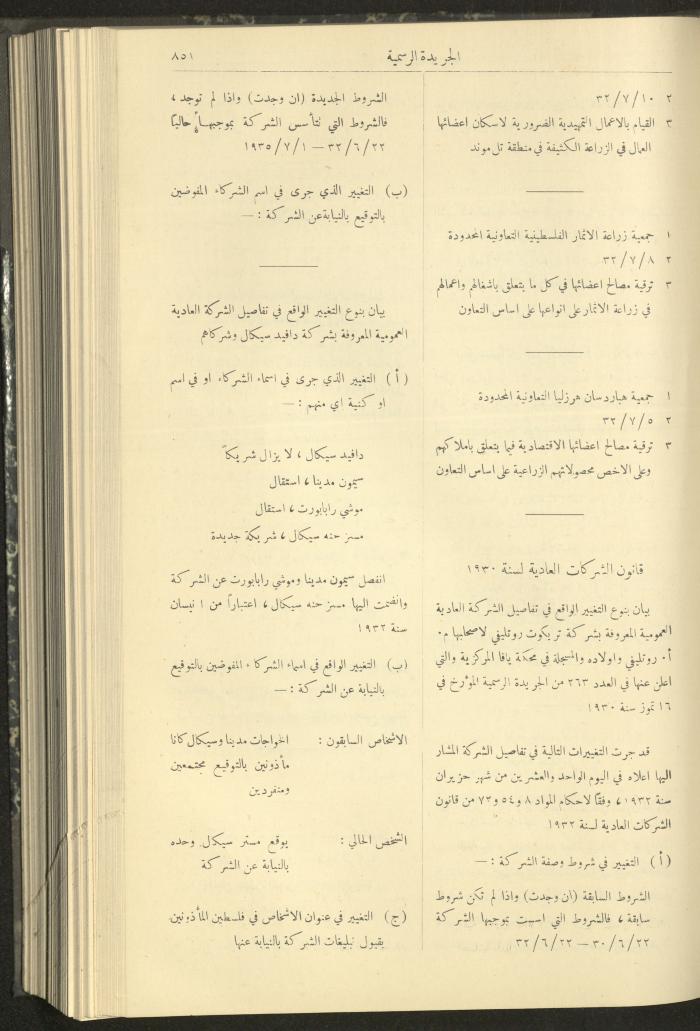 الجريدة الرسمية
٨٥١
٢ ٣٢/٧/١٠
٣ القيام بالاعمال التمهيدية الضرورية لاسكان اعضائها
العمال في الزراعة الكثيفة في منطقة تل موند
١ جمعية زراعة الاثمار الفلسطينية التعاونية المحدودة
٢ ٣٢/٧/٨
٣ ترقية مصالح اعضائها في كل ما يتعلق باشغالهم واعمالهم
في زراعة الاثمار على انواعها على اساس التعاون
١ جمعية هباردسان هرزليا التعاونية المحدودة
٢ ٣٢/٧/٥
٣ ترقية مصالح اعضائها الاقتصادية فيما يتعلق باملاكهم
وعلى الاخص محصولاتهم الزراعية على اساس التعاون
قانون الشركات العادية لسنة ١٩٣٠
بيان بنوع التغيير الواقع في تفاصيل الشركة العادية
العمومية المعروفة بشركة تريكوت روتليفي لاصحابها م٠
أ٠ روتليفي واولاده والمسجلة في محكمة يافا المركزية والتي
اعلن عنها في العدد ٢٦٣ من الجريدة الرسمية المؤرخ في
١٦ تموز سنة ١٩٣٠
قد جرت التغييرات التالية في تفاصيل الشركة المشار
اليها اعلاه في اليوم الواحد والعشرين من شهر حزيران
سنة ١٩٣٢، وفقًا لاحكام المواد ٨ و٥٤ و٧٢ من قانون
الشركات العادية لسنة ١٩٣٢
(أ) التغيير في شروط وصفة الشركة : —
الشروط السابقة (ان وجدت) واذا لم تكن شروط
سابقة، فالشروط التي اسست بموجبها الشركة
٣٠/٦/٢٢ — ٣٢/٦/٢٢
الشروط الجديدة (ان وجدت) واذا لم توجد،
فالشروط التي تتأسس الشركة بموجبها حاليًا
٣٢/٦/٢٢ — ١٩٣٥/٧/١
(ب) التغيير الذي جرى في اسم الشركاء المفوضين
بالتوقيع بالنيابة عن الشركة : —
بيان بنوع التغيير الواقع في تفاصيل الشركة العادية
العمومية المعروفة بشركة دافيد سيكال وشركاهم
(أ) التغيير الذي جرى في اسماء الشركاء او في اسم
او كنية اي منهم : —
دافيد سيكال، لا يزال شريكاً
سيمون مدينا، استقال
موشي رابابورت، استقال
مسز حنه سيكال، شريكة جديدة
انفصل سيمون مدينا وموشي رابابورت عن الشركة
وانضمت اليها مسز حنه سيكال، اعتباراً من ١ نيسان
سنة ١٩٣٢
(ب) التغيير الواقع في اسماء الشركاء المفوضين بالتوقيع
بالنيابة عن الشركة : —
الاشخاص السابقون : الخواجات مدينا وسيكال كانا
مأذونين بالتوقيع مجتمعين
ومنفردين
الشخص الحالي : يوقع مستر سيكال وحده
بالنيابة عن الشركة
(ج) التغيير في عنوان الاشخاص في فلسطين المأذونين
بقبول تبليغات الشركة بالنيابة عنها